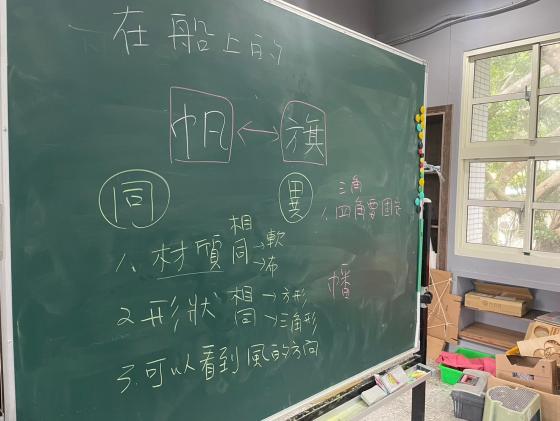 在船上的
帆 ↔ 旗
同 異
1. 材質 相同 → 軟 → 布
2. 形狀 相同 → 方形 → 三角形
3. 可以看到風的方向
三角
1. 四角要固定
幡